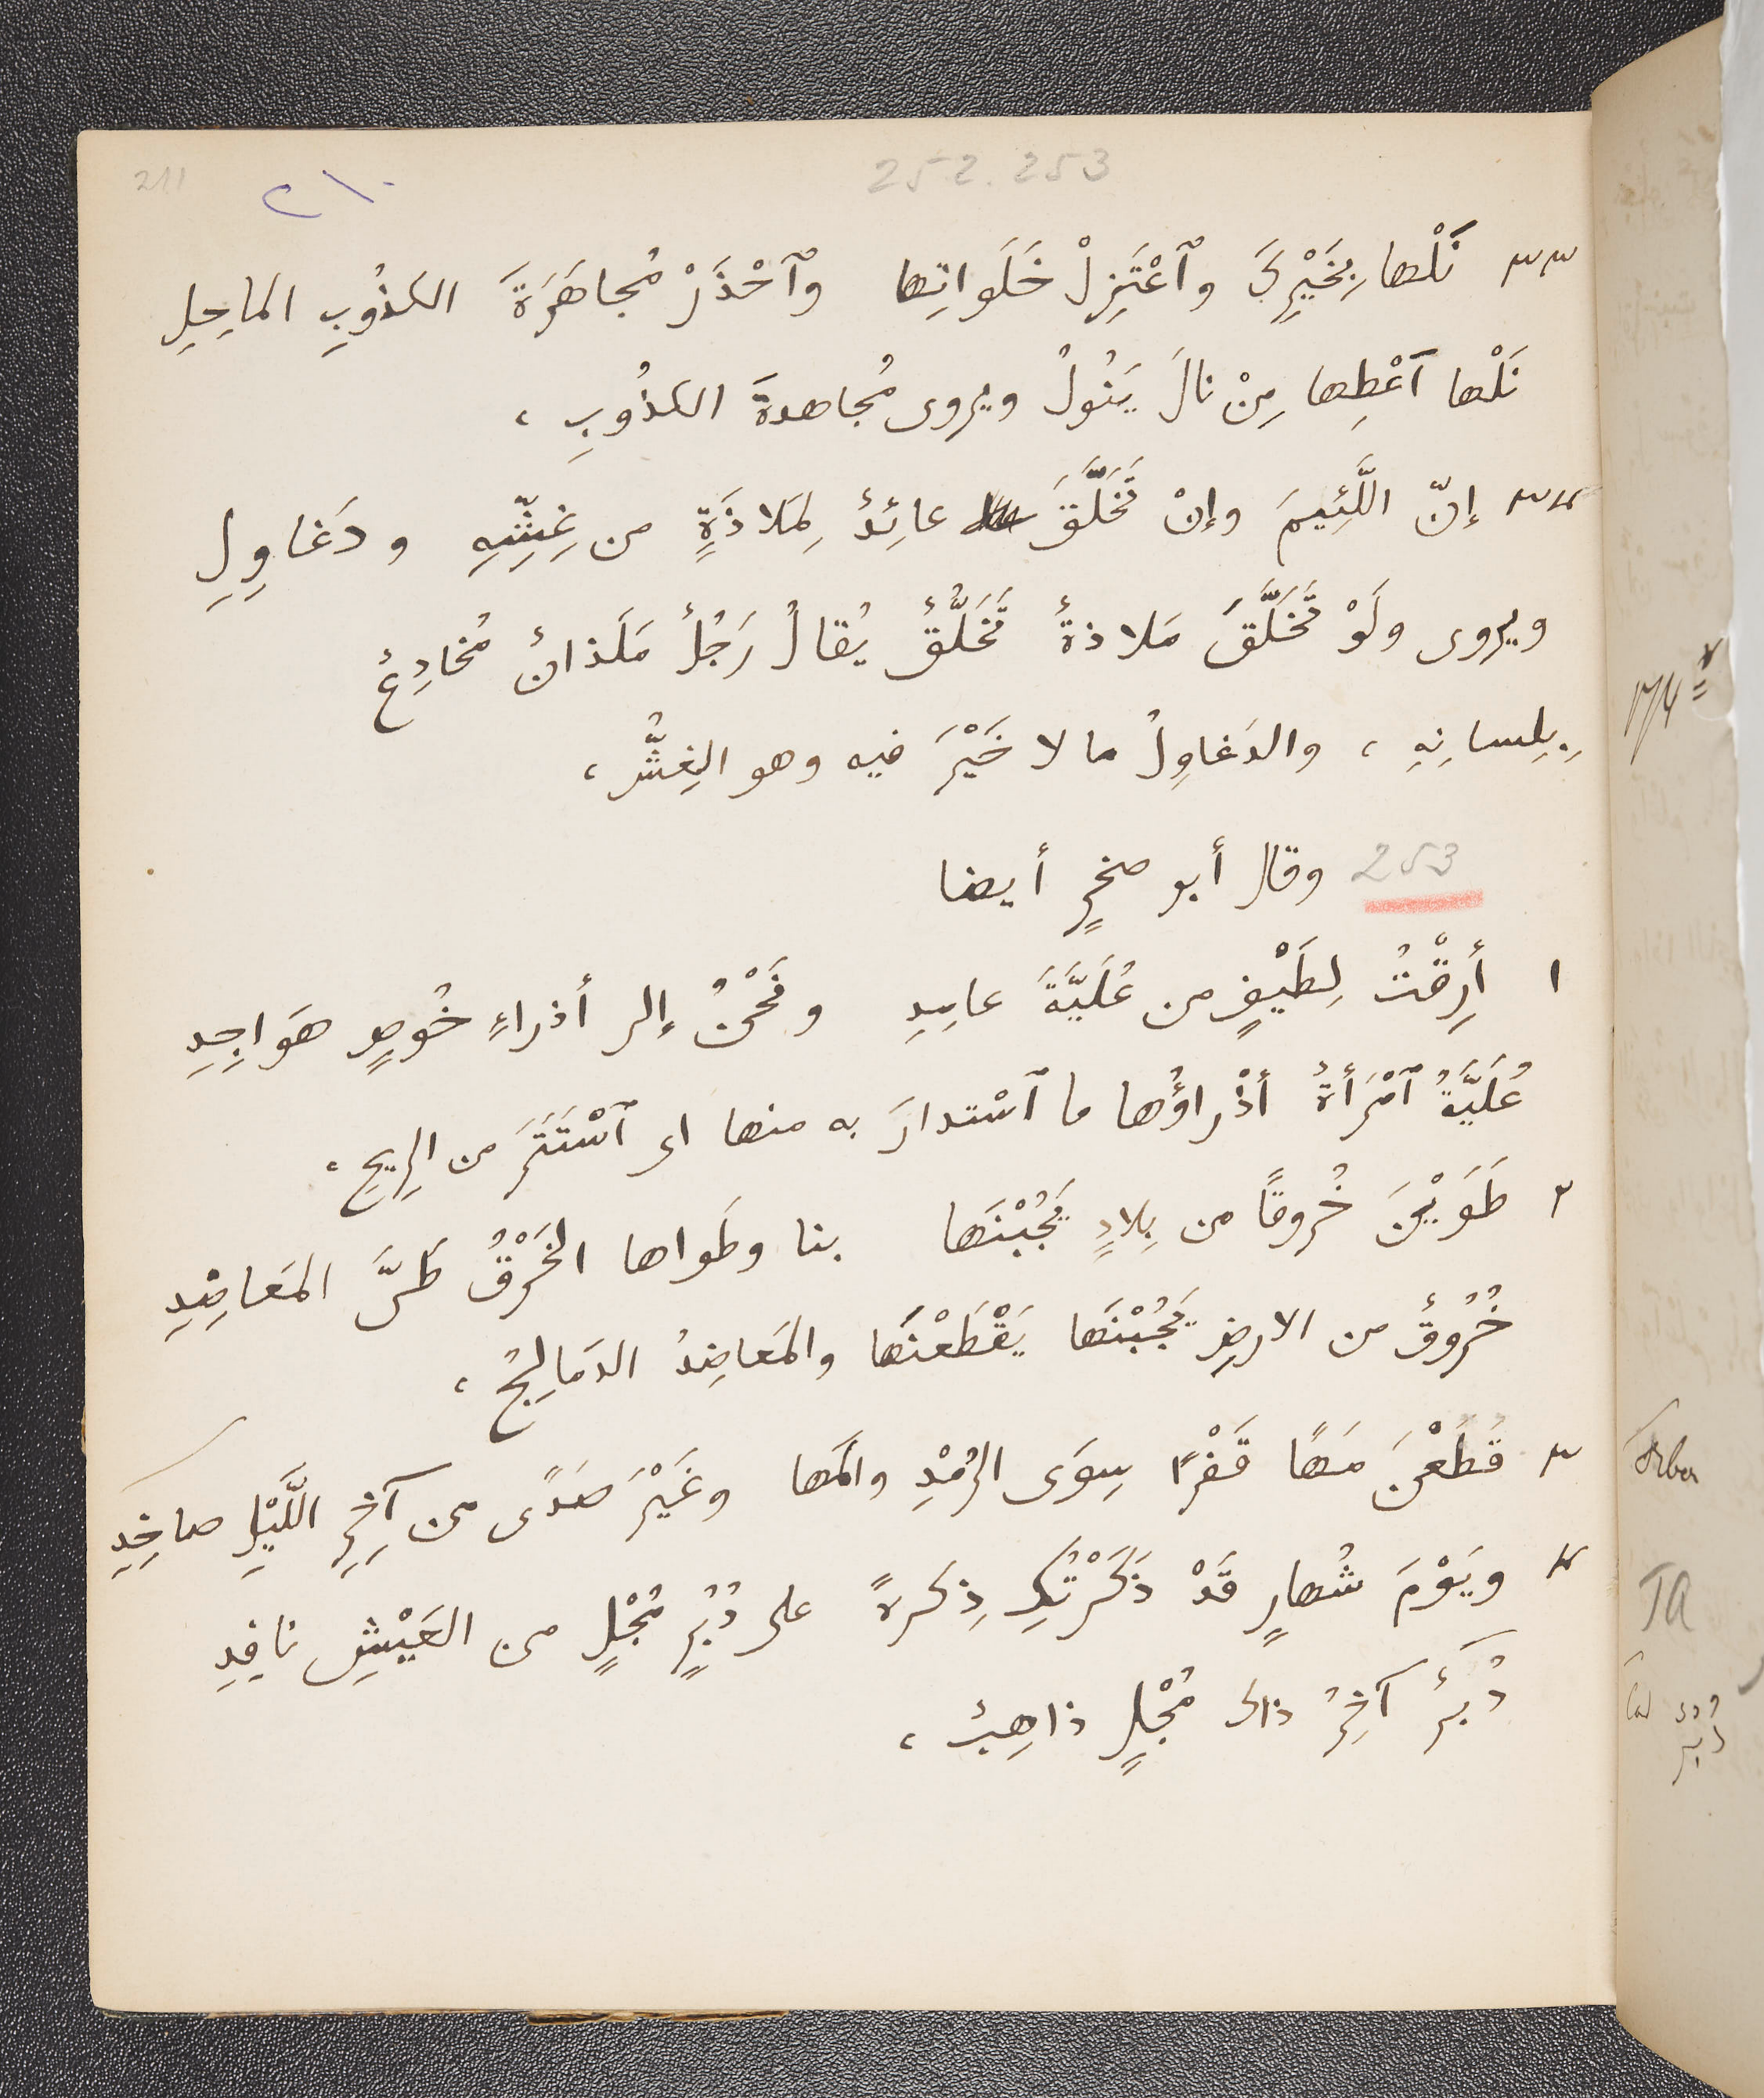 252. 253
٢١٠
211
٣٣ نَلْها بِخَيْرِكَ وٱعْتَزِلْ خَلَواتِها وٱحْذَرْ مُجاهَرَةَ الكذُوبِ الماحِلِ
نَلْها ٱعْطِها مِنْ نالَ يَنُولُ ويروى مُجاهدةَ الكذُوبِ ،
٣٤ إنّ اللَّئِيمَ وإنْ تَخَلَّقَ عائِدٌ لِمَلاذَةٍ من غِشِّهِ ودَغاوِلِ
ويروى ولَوْ تَخَلَّقَ مَلاذةٌ تَخَلُّقٌ يُقالُ رَجُلٌ مَلَذانٌ مُخادِعٌ
بِلِسانِهِ ، والدَغاوِلُ ما لا خَيْرَ فيه وهو الغِشُّ ،
253 وقال أبو صخرٍ أيضا
١ أَرِقْتُ لِطَيْفٍ من عُلَيَّةَ عامِدِ ونَحْنُ إلى أذراءِ خُوصٍ هَواجِدِ
عُلَيَّةُ ٱمْرَأةٌ أذْراؤُها ما ٱسْتدارَ به منها اى ٱسْتَتَرَ من الرِيحِ ،
٢ طَوَيْنَ خُروقًا من بِلادٍ يَجُبْنَها بنا وطَواها الخَرْقُ طَىَّ المَعاضِدِ
خُرُوقٌ من الارضِ يَجُبْنَها يَقْطَعْنَها والمَعاضِدُ الدَمالِجُ ،
٣ قَطَعْنَ مَهًا قَفْرًا سِوَى الرُمْدِ والمَها وغَيْرَ صَدًى من آخِرِ اللَّيْلِ صاخِدِ
٤ ويَوْمَ شُهارٍ قَدْ ذَكَرْتُكِ ذِكرةً على دُبُرٍ مُجْلٍ من العَيْشِ نافِدِ
دُبُرٌ آخِرُ ذاك مُجْلٍ ذاهِبٌ ،
TA